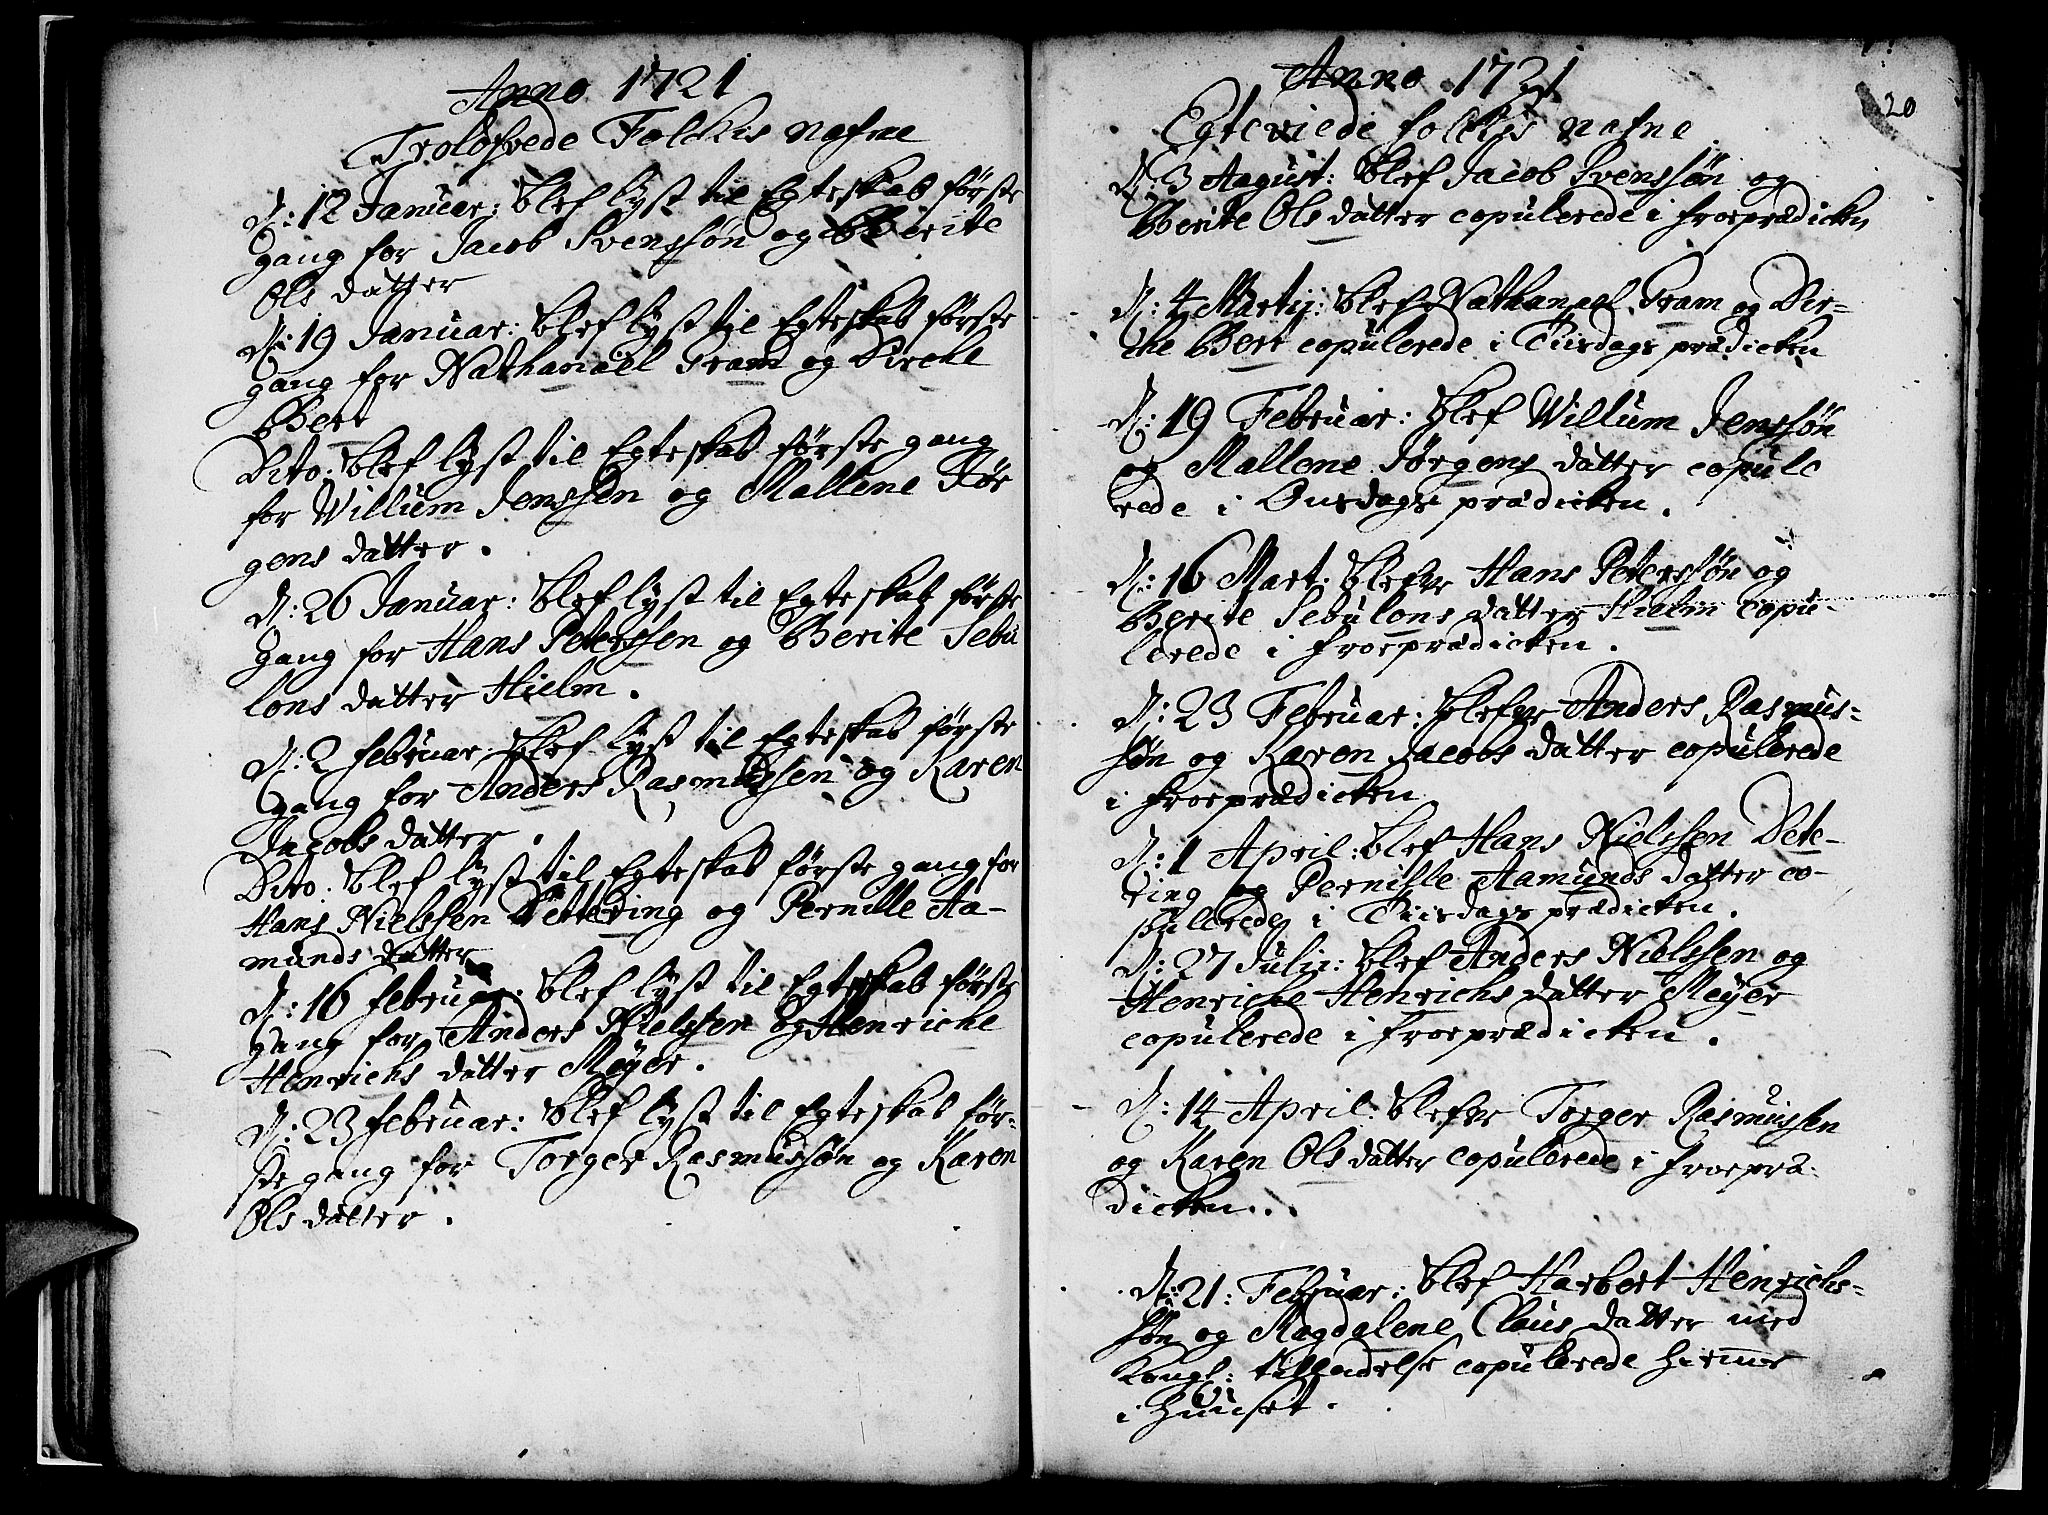 Anno 1721
Trolofvede Folckis nafne
D: 12 Januar: blef lyst til Egteskab første
gang for Jacob Svenssøn og Berite
Ols datter
D: 19 Januar: blef lyst til Egteskab første
gang for Nathanael Fram og Dirche
Bert
Dito: blef lyst til Egteskab første gang
for Willum Jenssen og Mallene Jør
gens datter.
D: 26 Januar: blef lyst til Egteskab første
gang for Hans Peterssen og Berite Sebu
lons datter Hielm.
D: 2 februar: blef lyst til Egteskab første
gang for Anders Rasmussen og Karen
Jacobs datter.
Dito: blef lyst til Egteskab første gang for
Hans Nielssen Dettering og Pernille Aa-
munds datter
D: 16 februar: blef lyst til Egteskab første
gang for Anders Nielssen og Henriche
Henrichs datter Meyer.
D: 23 februar: blef lyst til Egteskab før-
ste gang for Torger Rasmussøn og Karen
Ols datter.
Anno 1721
20
Egteviede folckis nafne
D: 3 August: blef Jacob Svenssøn og
Berite Ols datter copulerede i froeprædicken
D: 4 Martij: blef Nathanael Fram og Dir-
che Bert copulerede i Tiisdags prædicken
D: 19 Februar: blef Willum Jenssøn
og Mallene Jørgens datter copule
rede i Onsdags prædicken.
D: 16 Mart: blefve Hans Peterssøn og
Berite Sebulons datter Hielm copu-
lerede i froeprædicken.
D: 23 Februar: blefve Anders Rasmus-
søn og Karen Jacobs datter copulerede
i froeprædicken
D: 1 April: blef Hans Nielssen Dete-
ring og Pernille Aamunds datter co-
pulerede i Tiisdags prædicken.
D: 27 Julij: blef Anders Nielssen og
Henriche Henrichs datter Meyer
copulerede i froeprædicken.
D: 14 April: blefve Torger Rasmussen
og Karen Ols datter copulerede i froepræ-
dicken.
D: 21: Februar: blef Harbert Henrichs-
søn og Magdalene Claus datter med
Kongl: tilladelse copulerede hiemme
i huuset.